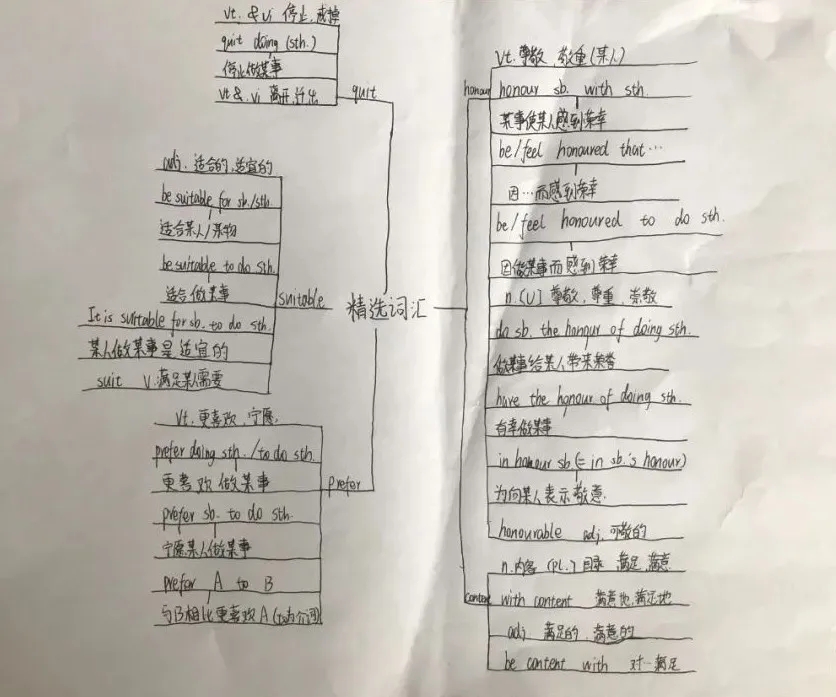 精选词汇
quit
vt. & vi 停止,戒掉
quit doing (sth.)
停止做某事
vt & vi 离开,
suitable
adj. 适合的,适宜的
be suitable for sb./sth.
适合某人/某物
be suitable to do sth.
适合做某事
It is suitable for sb. to do sth.
某人做某事是适宜的
suit v.满足某人需要
prefer
vt. 更喜欢,宁愿
prefer doing sth. / to do sth.
更喜欢做某事
prefer sb. to do sth.
宁愿某人做某事
prefer A to B
与B相比更喜欢A (to为介词)
honour
vt. 尊敬,敬重(某人)
honour sb. with sth.
某事使某人感到荣幸
be/feel honoured that…
因…而感到荣幸
be/feel honoured to do sth.
因做某事而感到荣幸
n. [U] 尊敬,尊重,崇敬
do sb. the honour of doing sth.
做某事给某人带来荣誉
have the honour of doing sth.
有幸做某事
in honour sb (= in sb.'s honour)
为向某人表示敬意.
honourable adj. 可敬的
content
n.内容 (pl.) 目录 满足,满意
with content 满意地,满足地
adj 满足的 满意的
be content with 对…满足